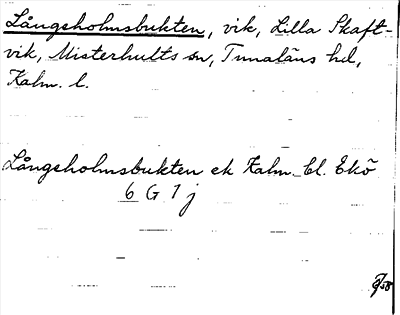 Långsholmsbukten, vik, Lilla Skaft-
vik, Misterhults sn, Tunaläns hd,
Kalm. l.
Långsholmsbukten ek Kalm. bl. Ekö
6 G 1 j